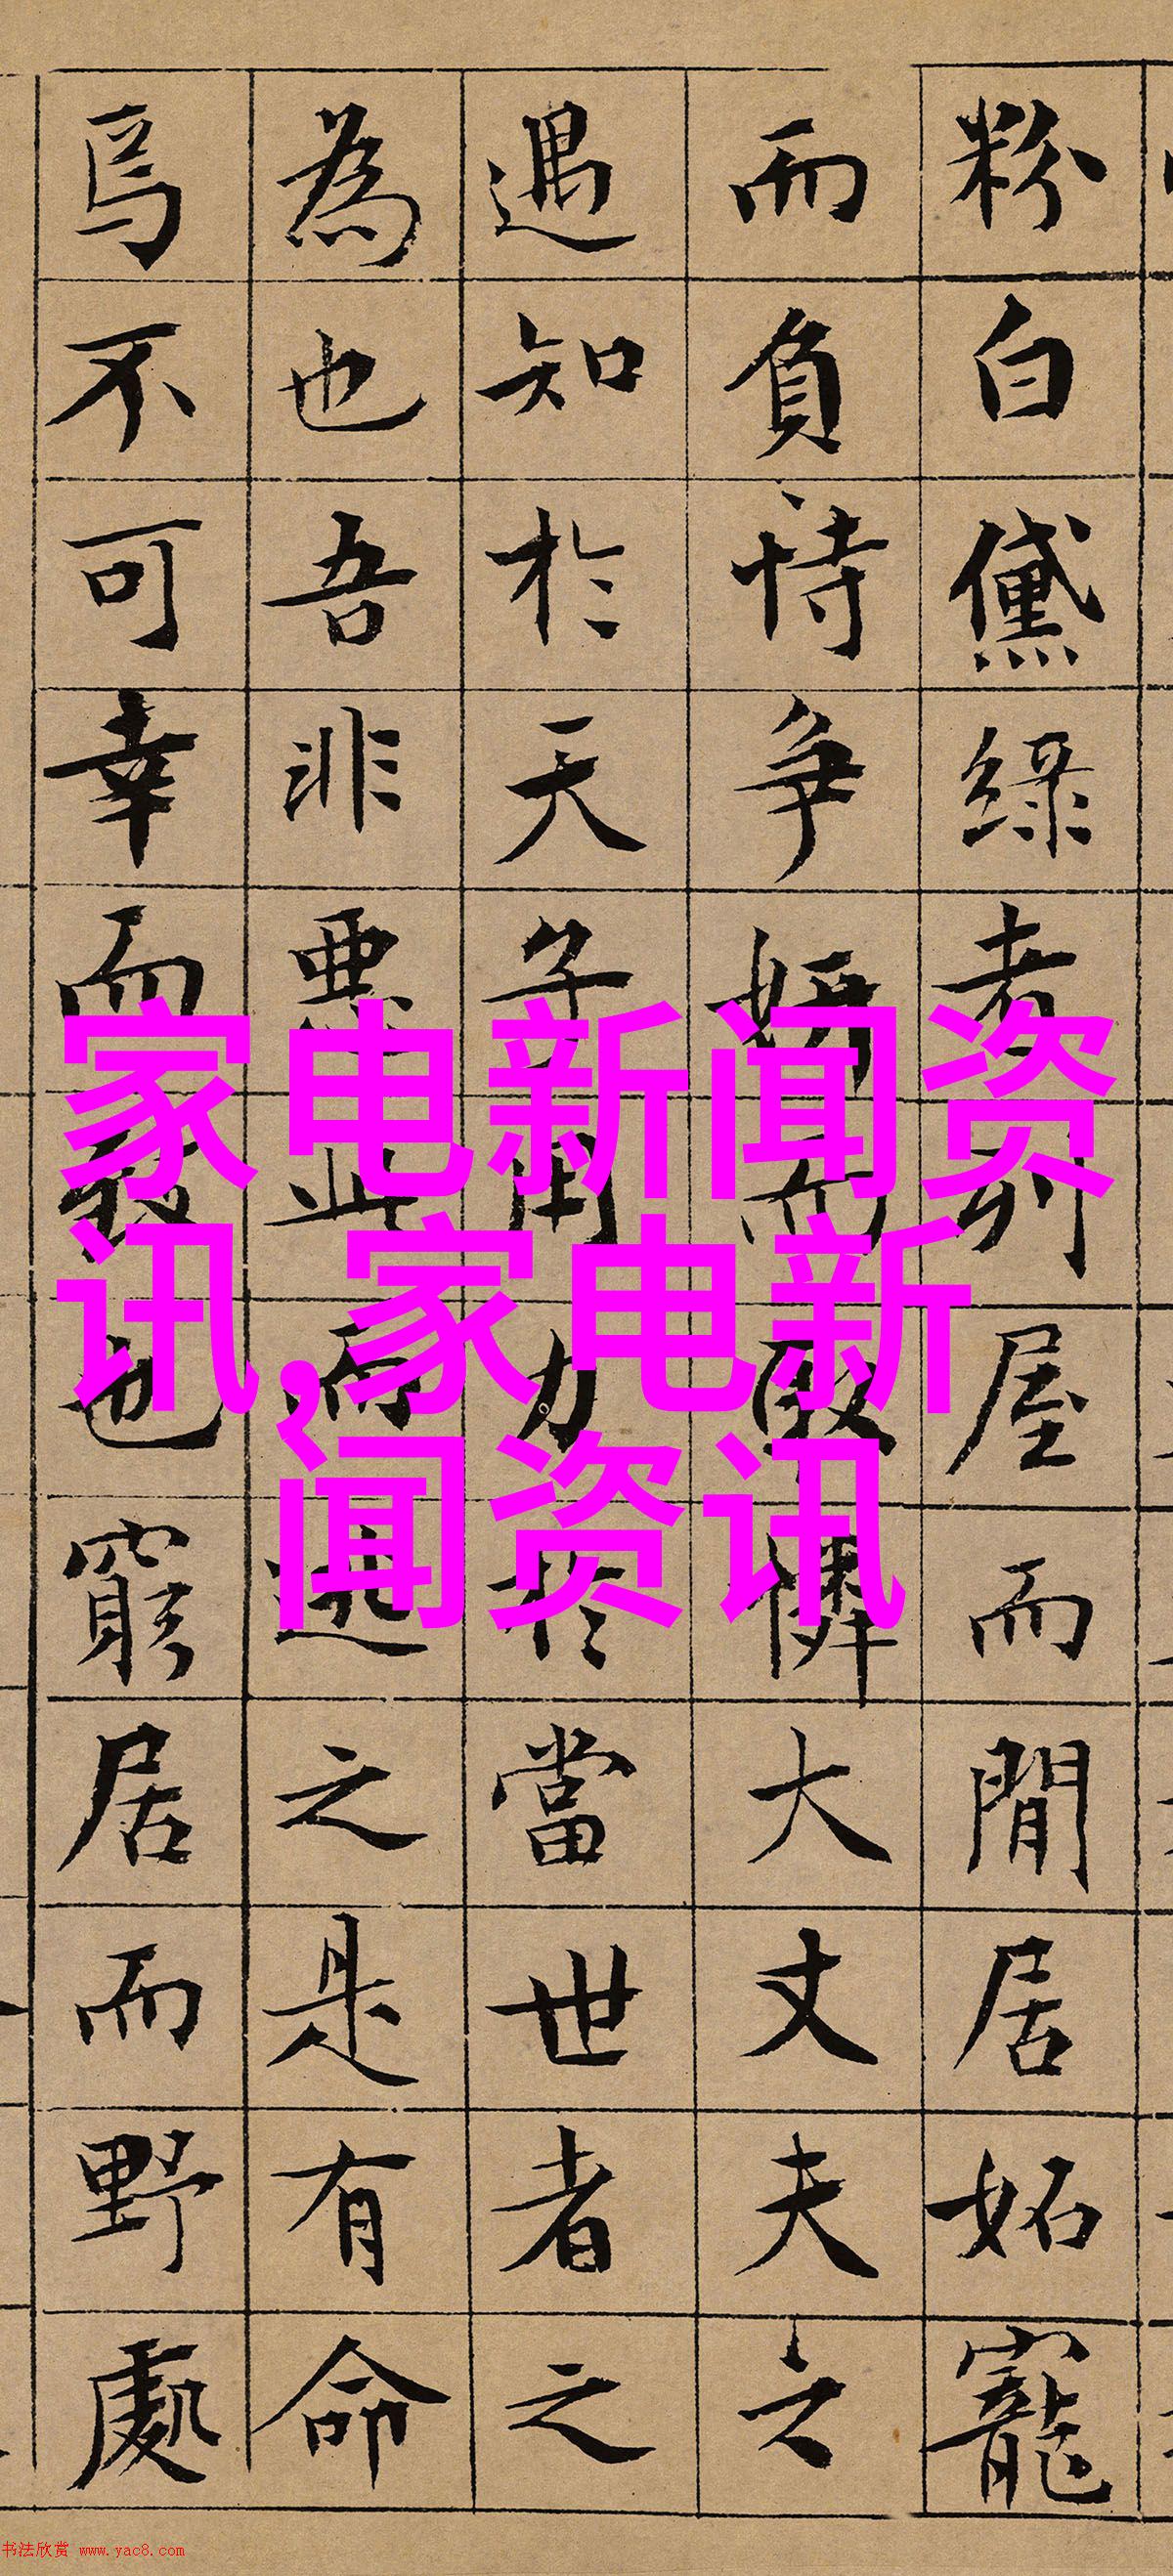 粉白黛綠者列屋而閒居妬寵
而負恃爭妍而取憐大丈夫之
遇知於天子用力於當世者之
為也吾非惡此而逃之是有命
焉不可幸而致也窮居而野處
家电新闻资
讯,家电新
闻资讯
书法欣赏 www.yac8.com